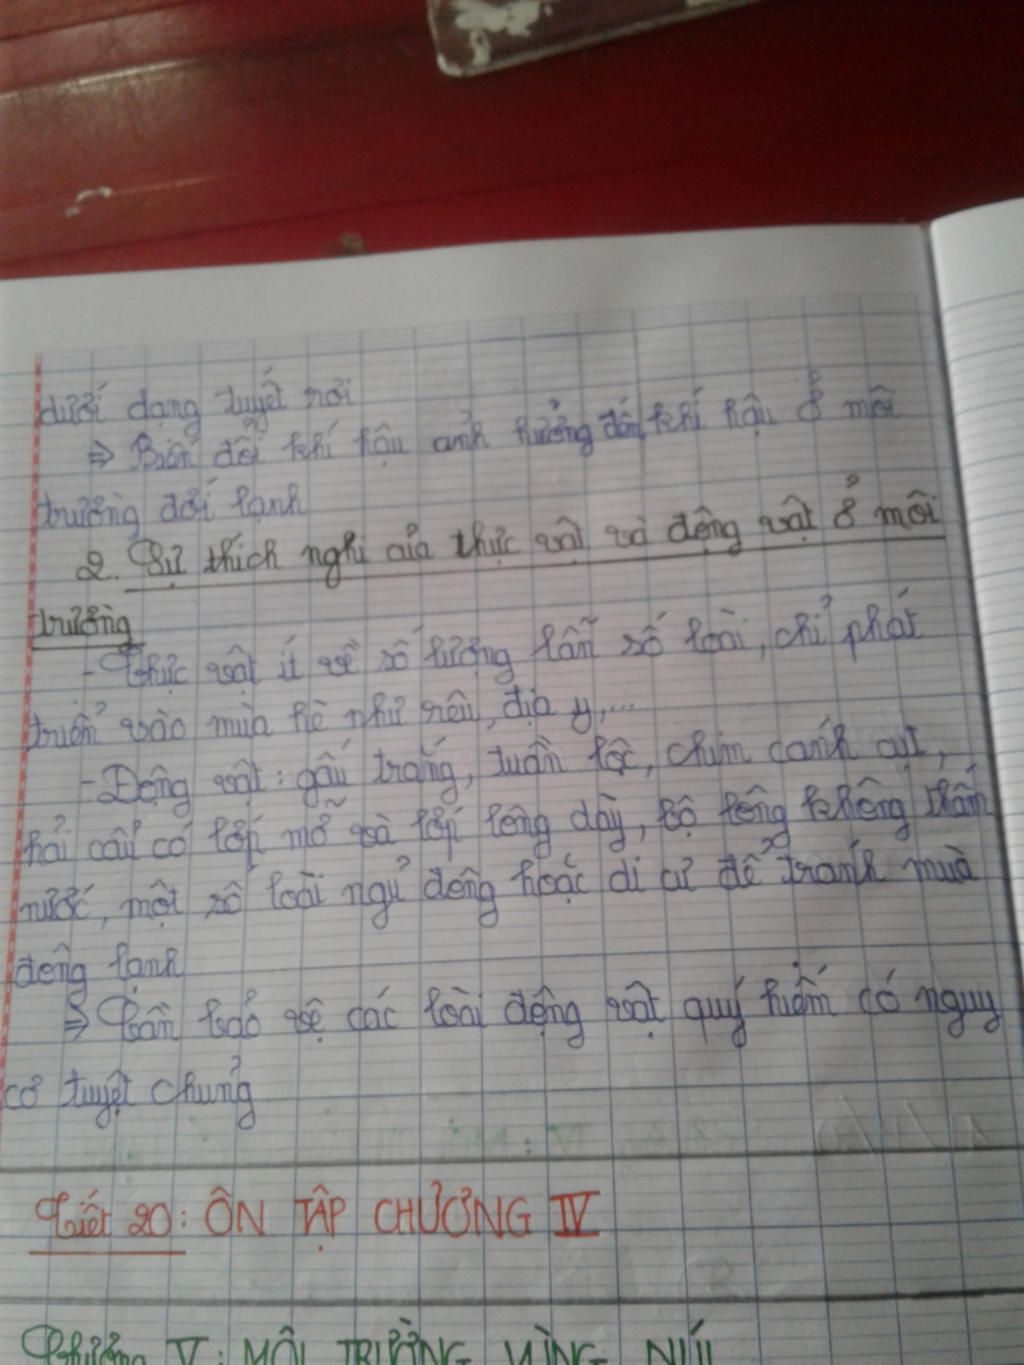 dưới dạng tuyết rơi
⇒ Biến đổi khí hậu ảnh hưởng đến khí hậu ở môi
trường đới lạnh
2. Sự thích nghi của thực vật và động vật ở môi
trường
- Thực vật ít về số lượng lẫn số loài, chỉ phát
triển vào mùa hè như rêu, địa y,...
- Động vật: gấu trắng, tuần lộc, chim cánh cụt,
hải cẩu có lớp mỡ và lớp lông dày, bộ lông không thấm
nước, một số loài ngủ đông hoặc di cư để tránh mùa
đông lạnh
⇒ Cần bảo vệ các loài động vật quý hiếm có nguy
cơ tuyệt chủng
Tiết 20: ÔN TẬP CHƯƠNG IV
Chương V: MÔI TRƯỜNG VÙNG NÚI